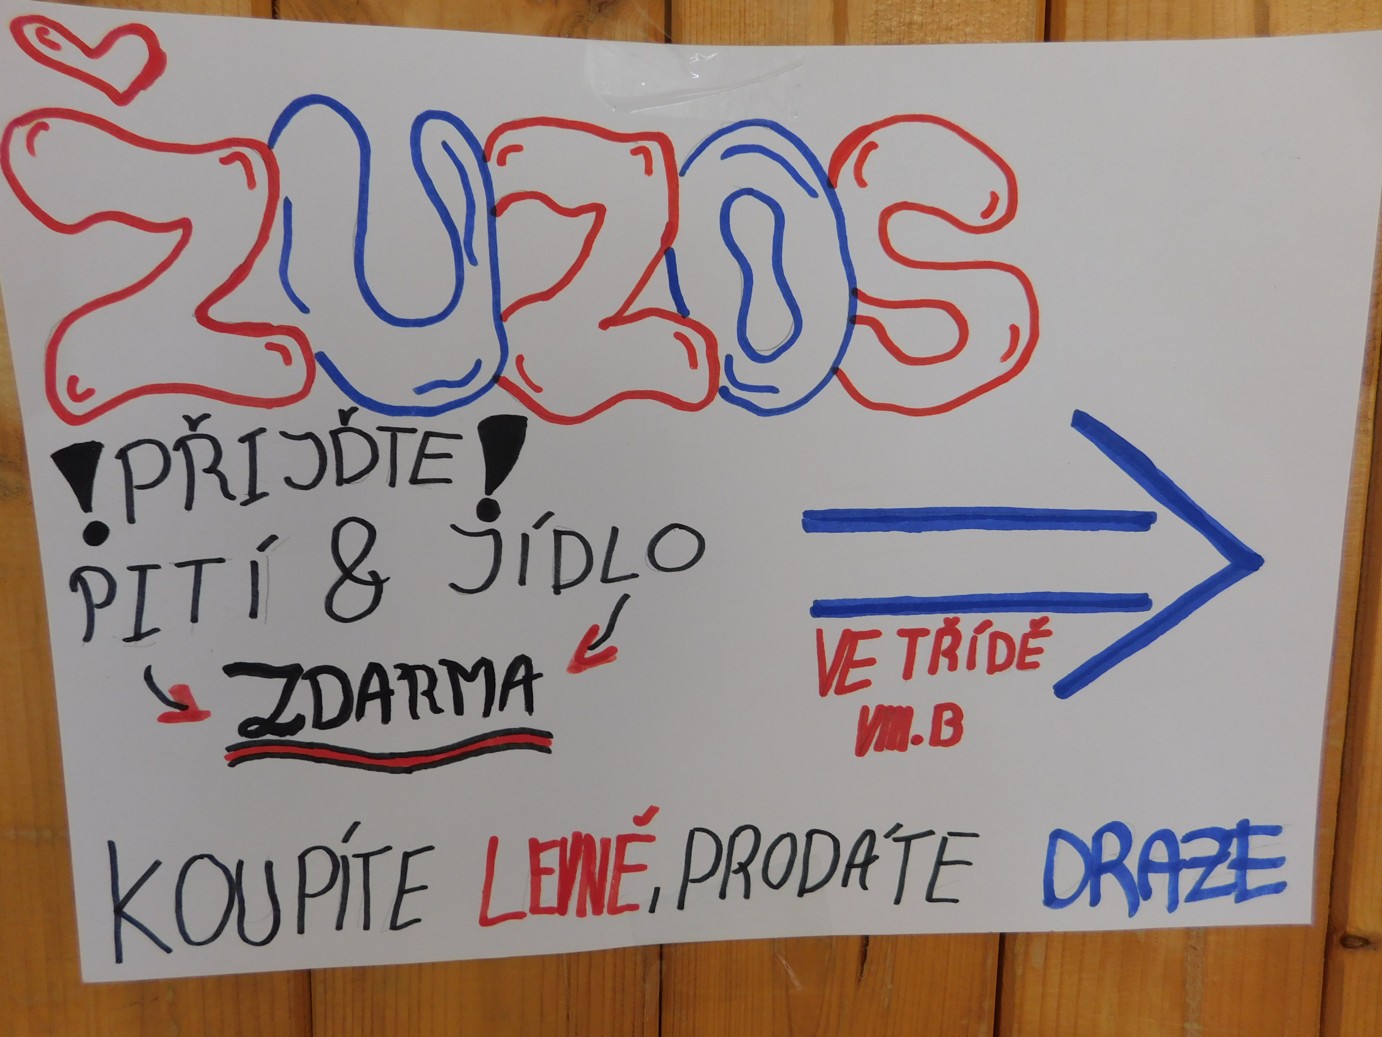 ŽUZOS
! PŘIJĎTE !
PITÍ & JÍDLO
ZDARMA
VE TŘÍDĚ
VIII.B
KOUPÍTE LEVNĚ, PRODÁTE DRAZE